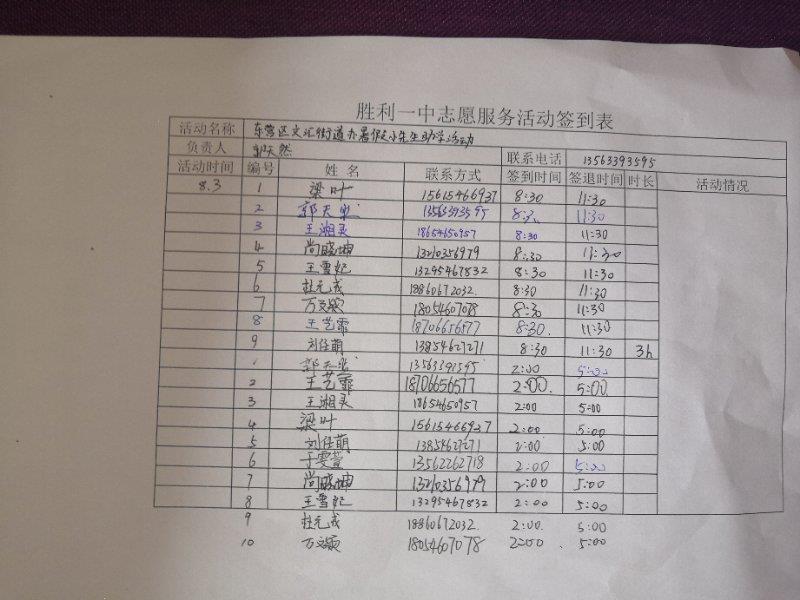 胜利一中志愿服务活动签到表
活动名称 东营区文汇街道办暑假小先生助学活动
负责人 郭天然 联系电话 13563393595
活动时间 编号 姓名 联系方式 签到时间 签退时间 时长 活动情况
8.3 1 梁叶 15615466937 8:30 11:30
2 郭天然 13563393595 8:30 11:30
3 王湘灵 18654650957 8:30 11:30
4 尚晓坤 13210356979 8:30 11:30
5 王雪妃 13295467832 8:30 11:30
6 杜元戎 18860672032 8:30 11:30
7 万文颖 18054607078 8:30 11:30
8 王艺霏 18706656577 8:30 11:30
9 刘任萌 13854627271 8:30 11:30 3h
1 郭天然 13563393595 2:00 5:00
2 王艺霏 18706656577 2:00 5:00
3 王湘灵 18654650957 2:00 5:00
4 梁叶 15615466937 2:00 5:00
5 刘任萌 13854627271 2:00 5:00
6 于雯萱 13562262718 2:00 5:00
7 尚晓坤 13210356979 2:00 5:00
8 王雪妃 13295467832 2:00 5:00
9 杜元戎 18860672032 2:00 5:00
10 万文颖 18054607078 2:00 5:00